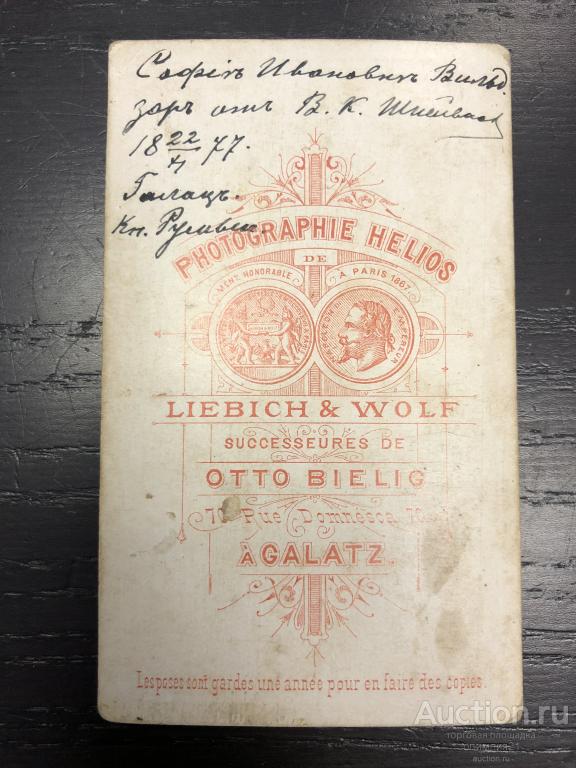 Софіи Ивановнѣ Вильд
зоръ отъ В. К.
18 22/XI 77.
Галацъ.
Кн.
PHOTOGRAPHIE HELIOS
DE
MENT. HONORABLE
À PARIS 1867
NAPOLEON III EMPEREUR
LIEBICH & WOLF
SUCCESSEURES DE
OTTO BIELIG
70 Rue Domnésca 70
À GALATZ.
Les poses sont gardes une année pour en faire des copies.
Аukцион.ru
торговая площадка
auction.ru